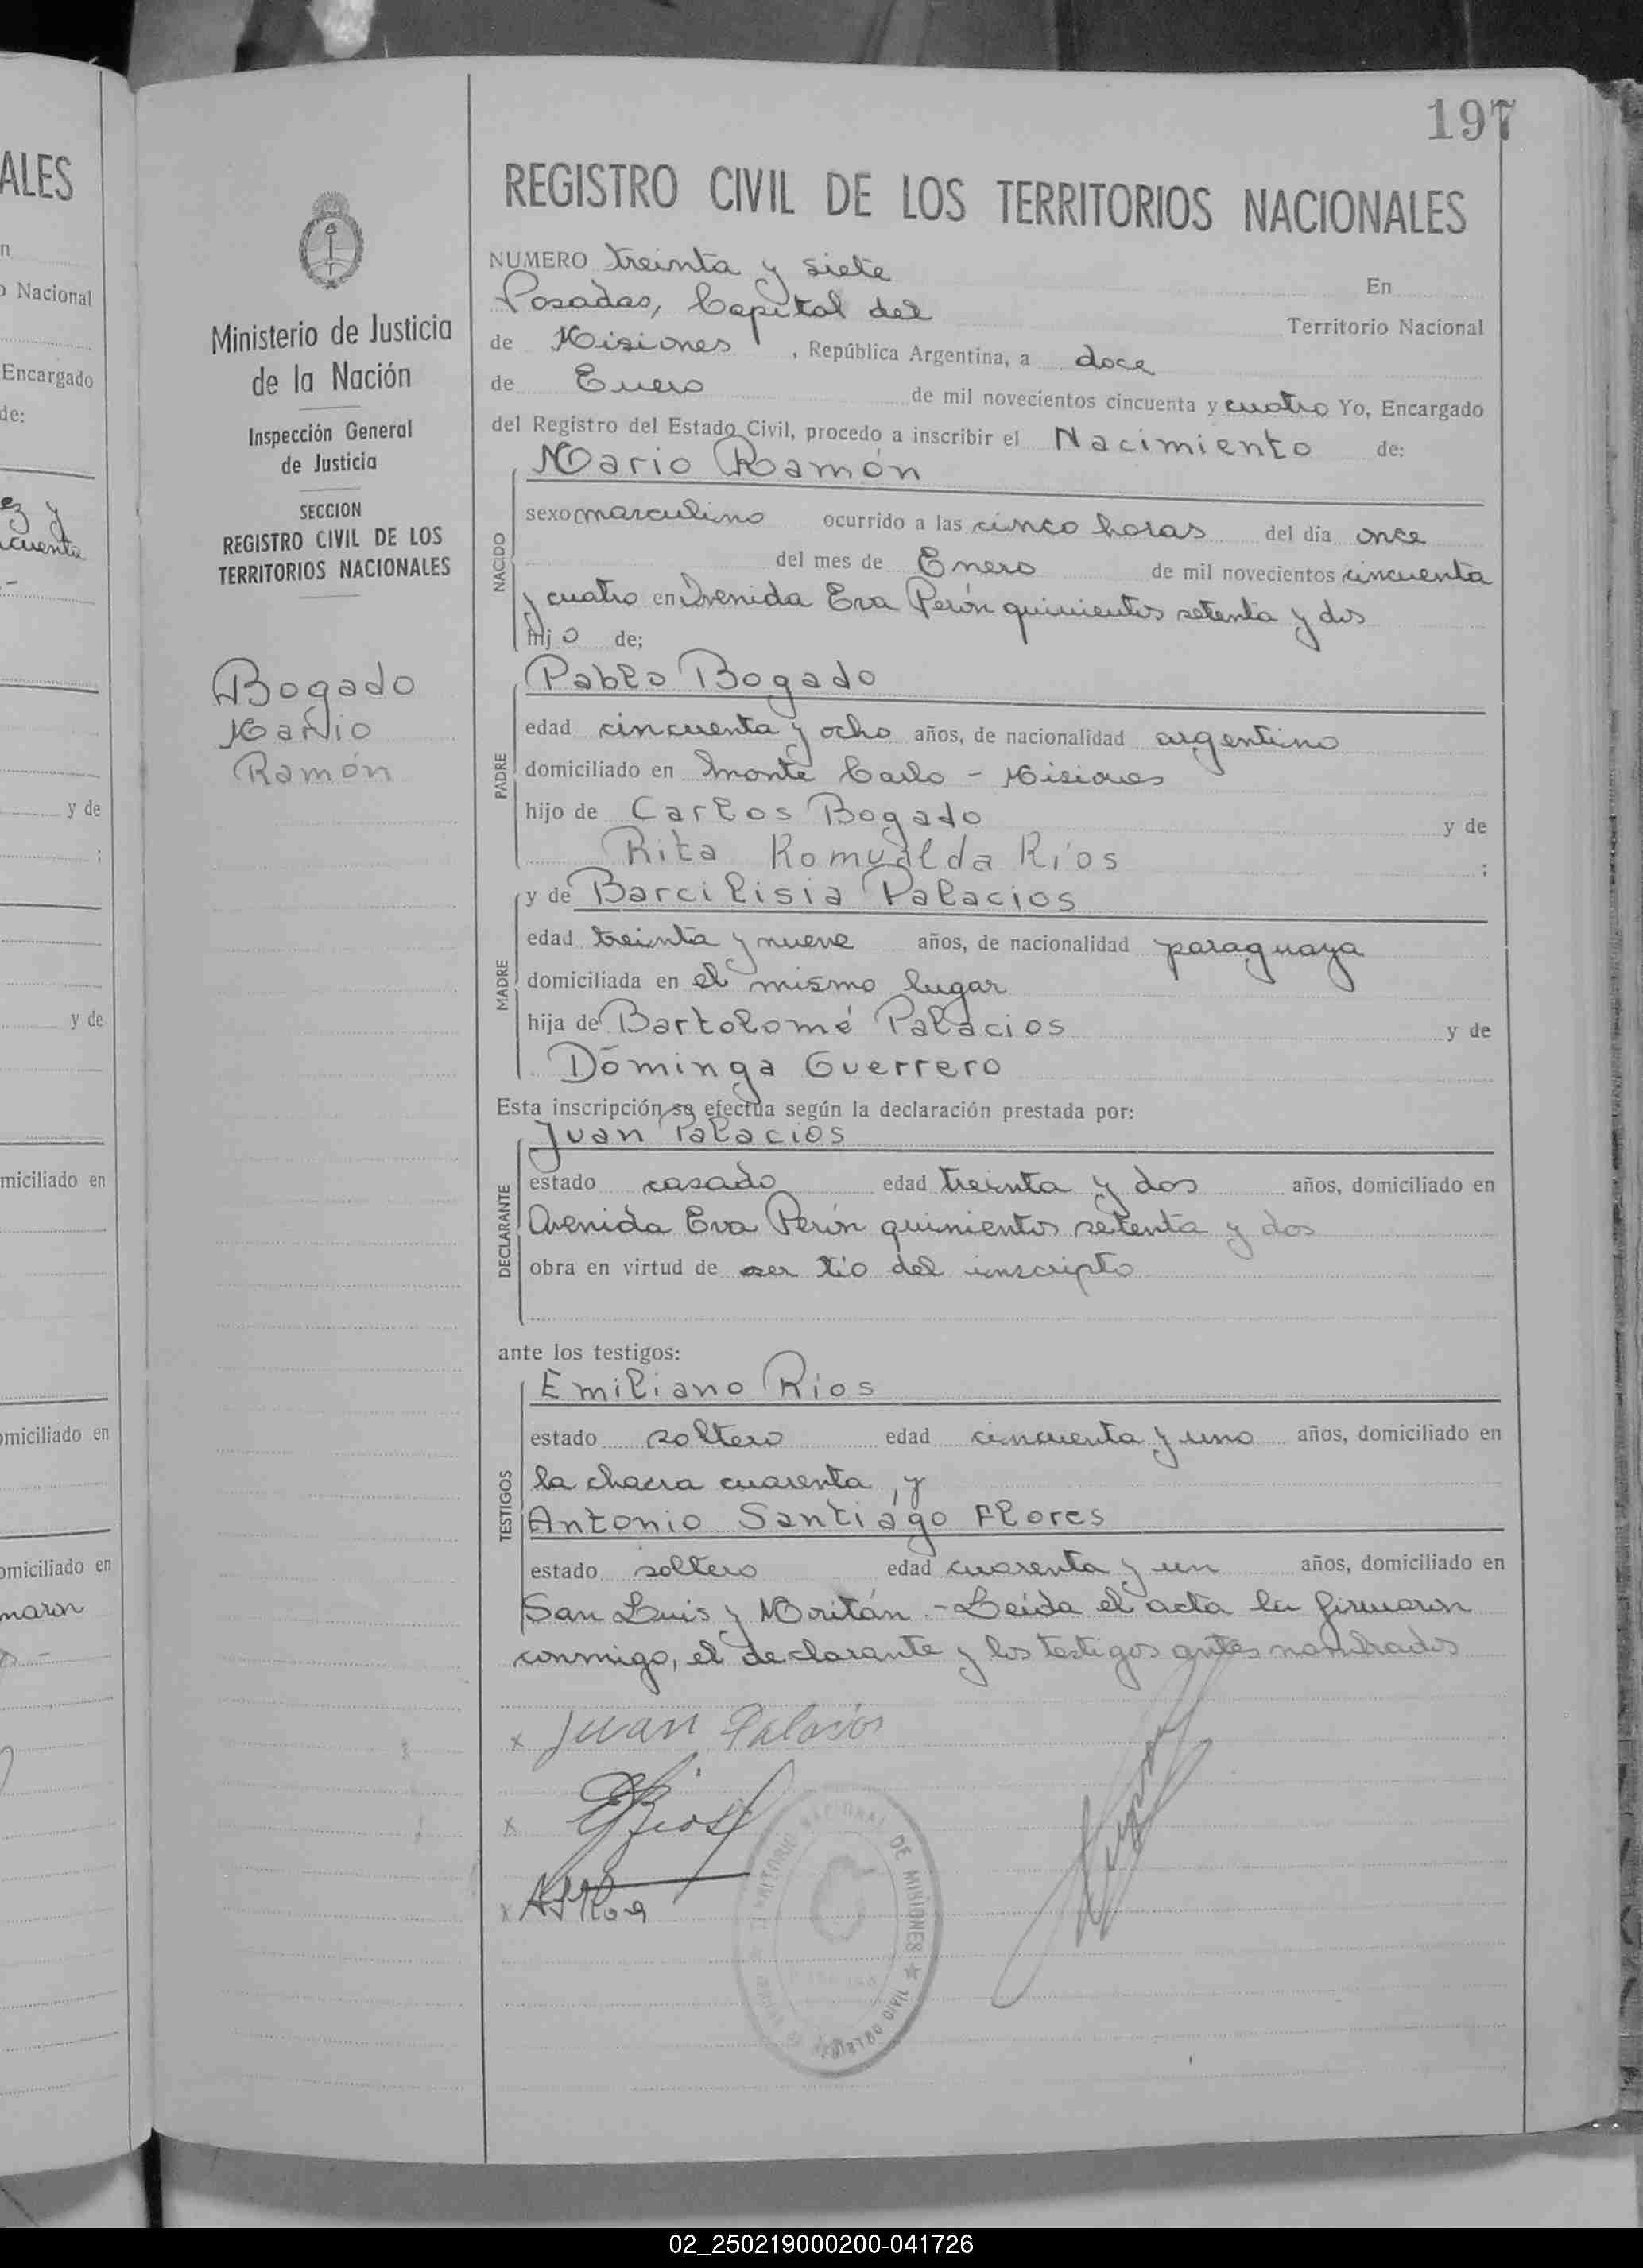 197
ALES
n
o Nacional
Encargado
de:
ez y
cuenta
y de
;
y de
miciliado en
omiciliado en
omiciliado en
maron
Ministerio de Justicia
de la Nación
Inspección General
de Justicia
SECCION
REGISTRO CIVIL DE LOS
TERRITORIOS NACIONALES
Bogado
Mario
Ramón
REGISTRO CIVIL DE LOS TERRITORIOS NACIONALES
NUMERO treinta y siete En
Posadas, Capital del Territorio Nacional
de Misiones, República Argentina, a doce
de Enero de mil novecientos cincuenta y cuatro Yo, Encargado
del Registro del Estado Civil, procedo a inscribir el Nacimiento de:
Mario Ramón
NACIDO
sexo masculino ocurrido a las cinco horas del día once
del mes de Enero de mil novecientos cincuenta
y cuatro en Avenida Eva Perón quinientos setenta y dos
hijo de;
Pablo Bogado
PADRE
edad cincuenta y ocho años, de nacionalidad argentino
domiciliado en Monte Carlo - Misiones
hijo de Carlos Bogado y de
Rita Romualda Ríos ;
y de Barcilisia Palacios
MADRE
edad treinta y nueve años, de nacionalidad paraguaya
domiciliada en el mismo lugar
hija de Bartolomé Palacios y de
Dominga Guerrero
Esta inscripción se efectúa según la declaración prestada por:
Juan Palacios
DECLARANTE
estado casado edad treinta y dos años, domiciliado en
Avenida Eva Perón quinientos setenta y dos
obra en virtud de ser tío del inscripto
ante los testigos:
Emiliano Rios
TESTIGOS
estado soltero edad cincuenta y uno años, domiciliado en
la chacra cuarenta, y
Antonio Santiago Flores
estado soltero edad cuarenta y un años, domiciliado en
San Luis y Moritán - Leída el acta la firmaron
conmigo, el declarante y los testigos antes nombrados
x Juan Palasios
x ERios
x
NACIONAL DE MISIONES ★
02_250219000200-041726